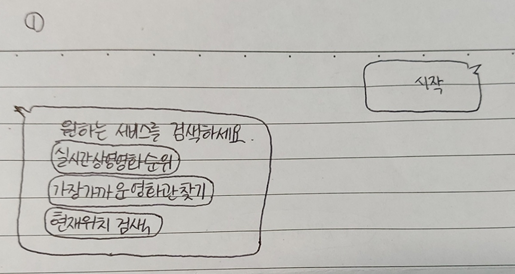 ①
시작
원하는 서비스를 검색하세요.
실시간상영영화순위
가장가까운영화관찾기
현재위치 검색